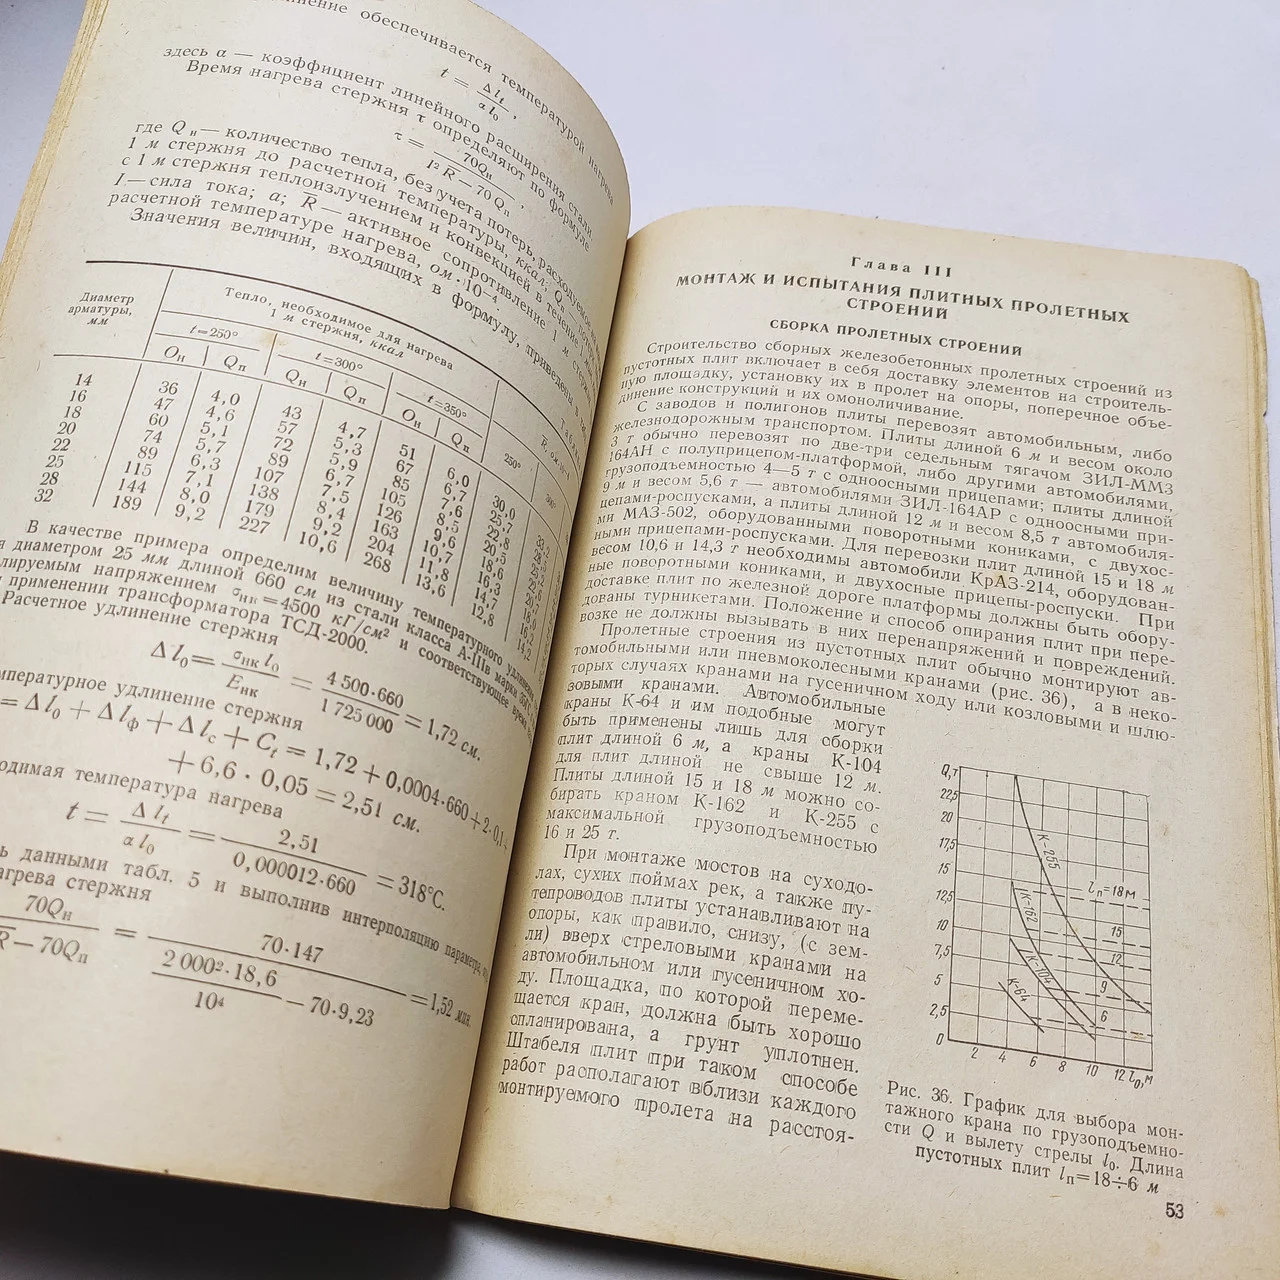 линение обеспечивается температурой нагрева
t = Δl_t / α l_0 ,
здесь α — коэффициент линейного расширения стали.
Время нагрева стержня τ определяют по формуле
τ = 70Q_н / I² R̅ — 70 Q_п ,
где Q_н — количество тепла, без учета потерь,
1 м стержня до расчетной температуры, ккал; Q_п
с 1 м стержня теплоизлучением и конвекцией в течение
I — сила тока; а; R̅ — активное сопротивление 1 м
расчетной температуре нагрева, ом·10⁻⁴.
Значения величин, входящих в формулу, приведены в
Диаметр арматуры, мм
Тепло, необходимое для нагрева 1 м стержня, ккал
t=250° t=300° t=350° 250° 300°
Q_н Q_п Q_н Q_п Q_н Q_п
14 36 4,0 43 4,7 51 6,0 30,0 33,2
16 47 4,6 57 5,3 67 6,7 25,7
18 60 5,1 72 5,9 85 7,6 22,8
20 74 5,7 89 6,7 105 8,5 20,5
22 89 6,3 107 7,5 126 9,6 18,6
25 115 7,1 138 8,4 163 10,7 16,3
28 144 8,0 179 9,2 204 11,8 14,7
32 189 9,2 227 10,6 268 13,6 12,8
В качестве примера определим величину температурного
диаметром 25 мм длиной 660 см из стали класса А-IIIв марки
лируемым напряжением σ_нк=4500 кГ/см² и соответствующее время
применении трансформатора ТСД-2000.
Расчетное удлинение стержня
Δl_0 = σ_нк l_0 / E_нк = 4 500·660 / 1 725 000 = 1,72 см.
мпературное удлинение стержня
= Δl_0 + Δl_ф + Δl_с + C_t = 1,72 + 0,0004·660 + 2·0,1 +
+ 6,6 · 0,05 = 2,51 см.
одимая температура нагрева
t = Δl_t / α l_0 = 2,51 / 0,000012·660 = 318°С.
ь данными табл. 5 и выполнив интерполяцию
агрева стержня
70Q_н / R̅ — 70Q_п = 70·147 / (2 000²·18,6 / 10⁴ — 70·9,23) = 1,52 мин.
Глава III
МОНТАЖ И ИСПЫТАНИЯ ПЛИТНЫХ ПРОЛЕТНЫХ
СТРОЕНИЙ
СБОРКА ПРОЛЕТНЫХ СТРОЕНИЙ
Строительство сборных железобетонных пролетных строений из
пустотных плит включает в себя доставку элементов на строитель-
ную площадку, установку их в пролет на опоры, поперечное объе-
динение конструкций и их омоноличивание.
С заводов и полигонов плиты перевозят автомобильным, либо
железнодорожным транспортом. Плиты длиной 6 м и весом около
3 т обычно перевозят по две-три седельным тягачом ЗИЛ-ММЗ
164АН с полуприцепом-платформой, либо другими автомобилями,
грузоподъемностью 4—5 т с одноосными прицепами; плиты длиной
9 м и весом 5,6 т — автомобилями ЗИЛ-164АР с одноосными при-
цепами-роспусками, а плиты длиной 12 м и весом 8,5 т автомобиля-
ми МАЗ-502, оборудованными поворотными кониками, с двухос-
ными прицепами-роспусками. Для перевозки плит длиной 15 и 18 м
весом 10,6 и 14,3 т необходимы автомобили КрАЗ-214, оборудован-
ные поворотными кониками, и двухосные прицепы-роспуски. При
доставке плит по железной дороге платформы должны быть обору-
дованы турникетами. Положение и способ опирания плит при пере-
возке не должны вызывать в них перенапряжений и повреждений.
Пролетные строения из пустотных плит обычно монтируют ав-
томобильными или пневмоколесными кранами (рис. 36), а в неко-
торых случаях кранами на гусеничном ходу или козловыми и шлю-
зовыми кранами. Автомобильные
краны К-64 и им подобные могут
быть применены лишь для сборки
плит длиной 6 м, а краны К-104
для плит длиной не свыше 12 м.
Плиты длиной 15 и 18 м можно со-
бирать краном К-162 и К-255 с
максимальной грузоподъемностью
16 и 25 т.
При монтаже мостов на суходо-
лах, сухих поймах рек, а также пу-
тепроводов плиты устанавливают на
опоры, как правило, снизу, (с зем-
ли) вверх стреловыми кранами на
автомобильном или гусеничном хо-
ду. Площадка, по которой переме-
щается кран, должна быть хорошо
спланирована, а грунт уплотнен.
Штабеля плит при таком способе
работ располагают вблизи каждого
монтируемого пролета на расстоя-
Q,т
22,5
20
17,5
15
12,5
10
7,5
5
2,5
0
К-255
К-162
К-104
К-64
l_п=18м
15
12
9
6
2 4 6 8 10 12 l_0,м
Рис. 36. График для выбора мон-
тажного крана по грузоподъемно-
сти Q и вылету стрелы l_0. Длина
пустотных плит l_п=18÷6 м
53